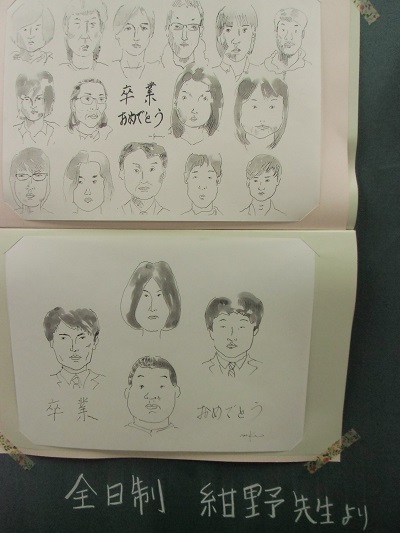 卒業
おめでとう
卒業 おめでとう
全日制 紺野先生より